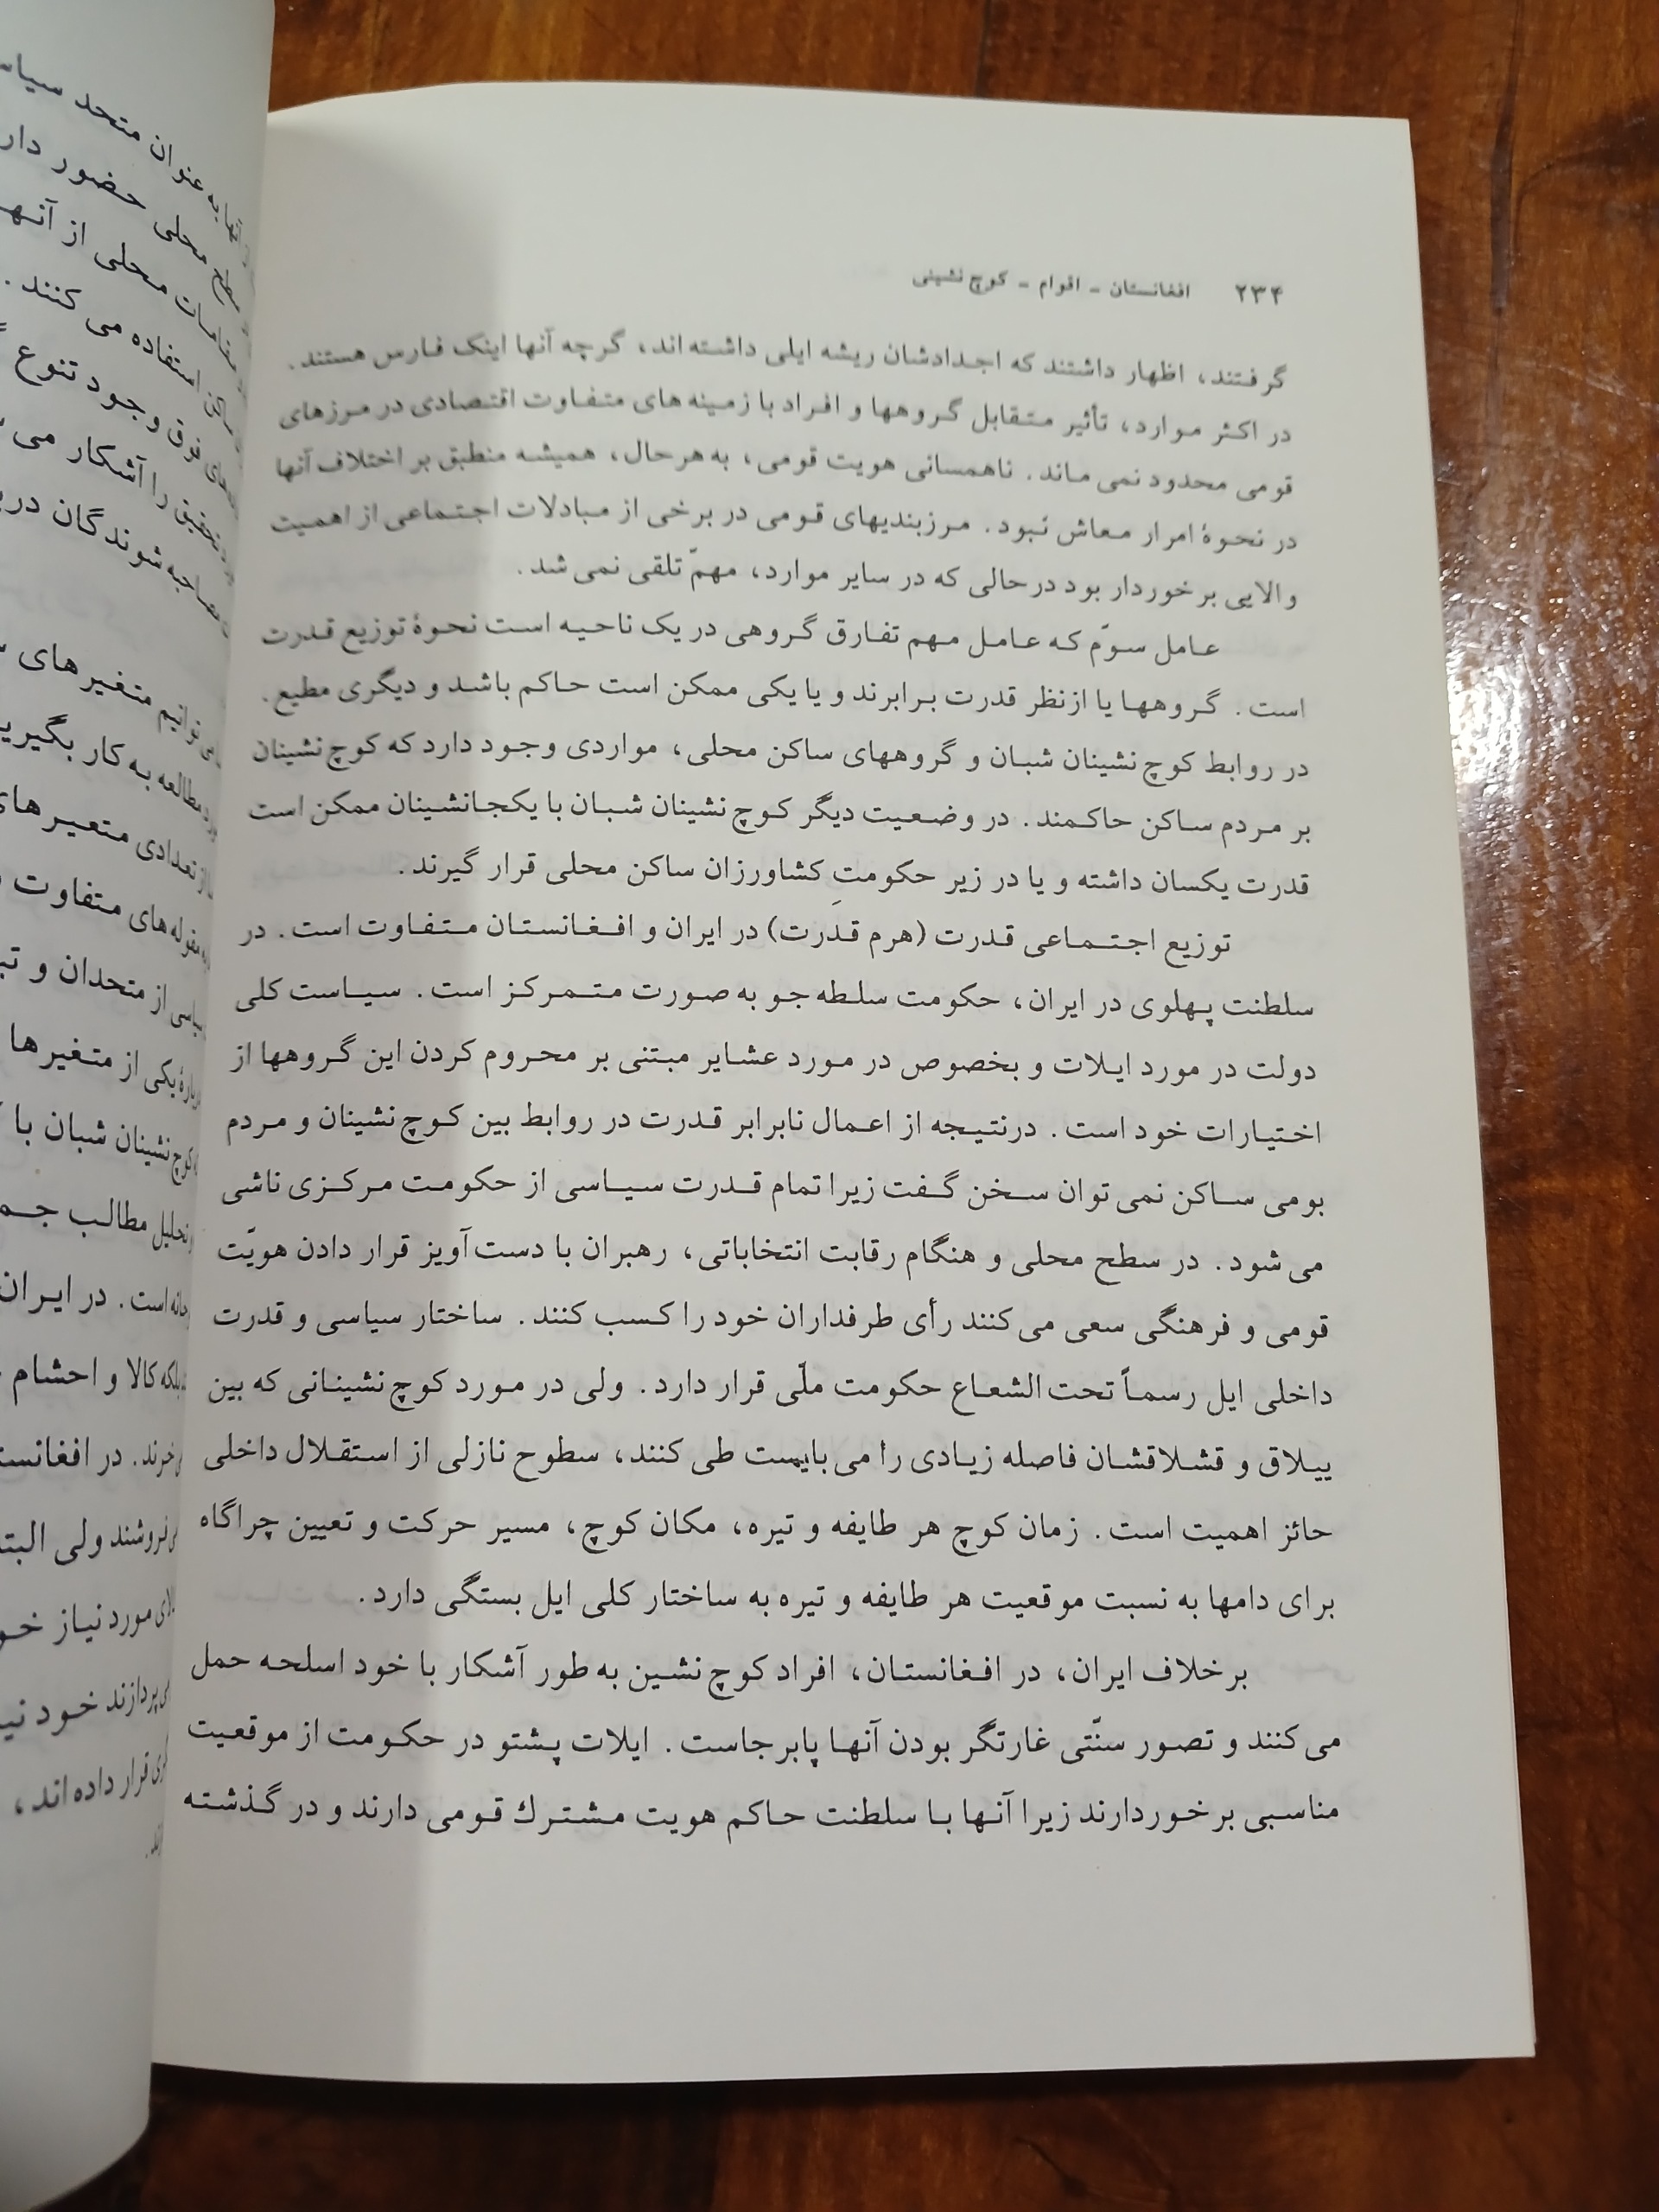 ۲۳۴ افغانستان - اقوام - کوچ نشینی
گرفتند، اظهار داشتند که اجدادشان ریشه ایلی داشته اند، گرچه آنها اینک فارس هستند.
در اکثر موارد، تأثیر متقابل گروهها و افراد با زمینه های متفاوت اقتصادی در مرزهای
قومی محدود نمی ماند. ناهمسانی هویت قومی، به هرحال، همیشه منطبق بر اختلاف آنها
در نحوهٔ امرار معاش نبود. مرزبندیهای قومی در برخی از مبادلات اجتماعی از اهمیت
والایی برخوردار بود درحالی که در سایر موارد، مهمّ تلقی نمی شد.
عامل سوّم که عامل مهم تفارق گروهی در یک ناحیه است نحوهٔ توزیع قدرت
است. گروهها یا ازنظر قدرت برابرند و یا یکی ممکن است حاکم باشد و دیگری مطیع.
در روابط کوچ نشینان شبان و گروههای ساکن محلی، مواردی وجود دارد که کوچ نشینان
بر مردم ساکن حاکمند. در وضعیت دیگر کوچ نشینان شبان با یکجانشینان ممکن است
قدرت یکسان داشته و یا در زیر حکومتِ کشاورزان ساکن محلی قرار گیرند.
توزیع اجتماعی قدرت (هرم قدرت) در ایران و افغانستان متفاوت است. در
سلطنت پهلوی در ایران، حکومت سلطه جو به صورت متمرکز است. سیاست کلی
دولت در مورد ایلات و بخصوص در مورد عشایر مبتنی بر محروم کردن این گروهها از
اختیارات خود است. درنتیجه از اعمال نابرابر قدرت در روابط بین کوچ نشینان و مردم
بومی ساکن نمی توان سخن گفت زیرا تمام قدرت سیاسی از حکومت مرکزی ناشی
می شود. در سطح محلی و هنگام رقابت انتخاباتی، رهبران با دست آویز قرار دادن هویّت
قومی و فرهنگی سعی می کنند رأی طرفداران خود را کسب کنند. ساختار سیاسی و قدرت
داخلی ایل رسماً تحت الشعاع حکومت ملّی قرار دارد. ولی در مورد کوچ نشینانی که بین
ییلاق و قشلاقشان فاصله زیادی را می بایست طی کنند، سطوح نازلی از استقلال داخلی
حائز اهمیت است. زمان کوچ هر طایفه و تیره، مکان کوچ، مسیر حرکت و تعیین چراگاه
برای دامها به نسبت موقعیت هر طایفه و تیره به ساختار کلی ایل بستگی دارد.
برخلاف ایران، در افغانستان، افراد کوچ نشین به طور آشکار با خود اسلحه حمل
می کنند و تصور سنّتی غارتگر بودن آنها پابرجاست. ایلات پشتو در حکومت از موقعیت
مناسبی برخوردارند زیرا آنها با سلطنت حاکم هویت مشترك قومی دارند و در گذشته
به عنوان متحد
محلی حضور
محلی از
استفاده می کنند.
فوق وجود تنوع
را آشکار می
شوندگان
توانیم متغیرهای
مطالعه به کار
تعدادی متعیرهای
های متفاوت
از متحدان و
یکی از متغیرها
نشینان شبان با
تحلیل مطالب
است. در ایران
کالا و احشام
در افغانست
ولی البته
مورد نیاز
پردازند خود
قرار داده اند،